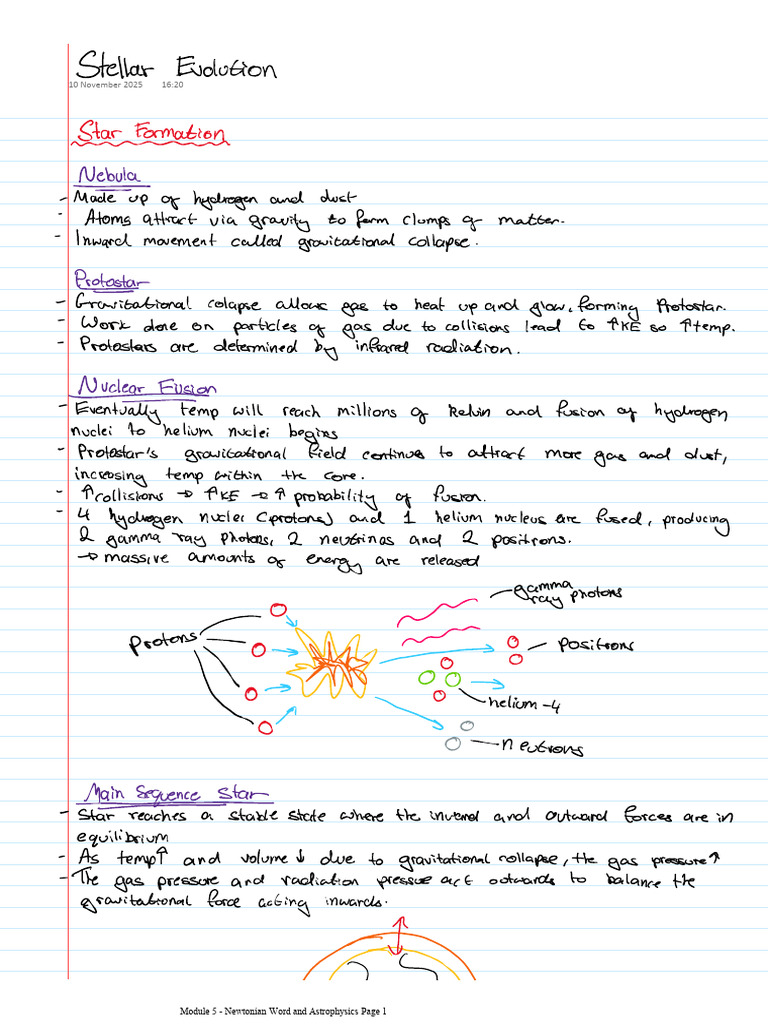 Stellar Evolution
10 November 2025 16:20
Star Formation
Nebula
- Made up of hydrogen and dust
- Atoms attract via gravity to form clumps of matter.
- Inward movement called gravitational collapse.
Protostar
- Gravitational colapse allows gas to heat up and glow, forming Protostar.
- Work done on particles of gas due to collisions lead to ↑KE so ↑temp.
- Protostars are determined by infrared radiation.
Nuclear Fusion
- Eventually temp will reach millions of kelvin and fusion of hydrogen
nuclei to helium nuclei begins
- Protostar's gravitational field continues to attract more gas and dust,
increasing temp within the core.
- ↑collisions → ↑KE → ↑ probability of fusion.
- 4 hydrogen nuclei (protons) and 1 helium nucleus are fused, producing
2 gamma ray photons, 2 neutrinos and 2 positrons.
→ massive amounts of energy are released
gamma
ray photons
Protons
positrons
helium-4
neutrons
Main Sequence Star
- Star reaches a stable state where the inward and outward forces are in
equilibrium
- As temp↑ and volume↓ due to gravitational collapse, the gas pressure↑
- The gas pressure and radiation pressure act outwards to balance the
gravitational force acting inwards.
Module 5 - Newtonian Word and Astrophysics Page 1